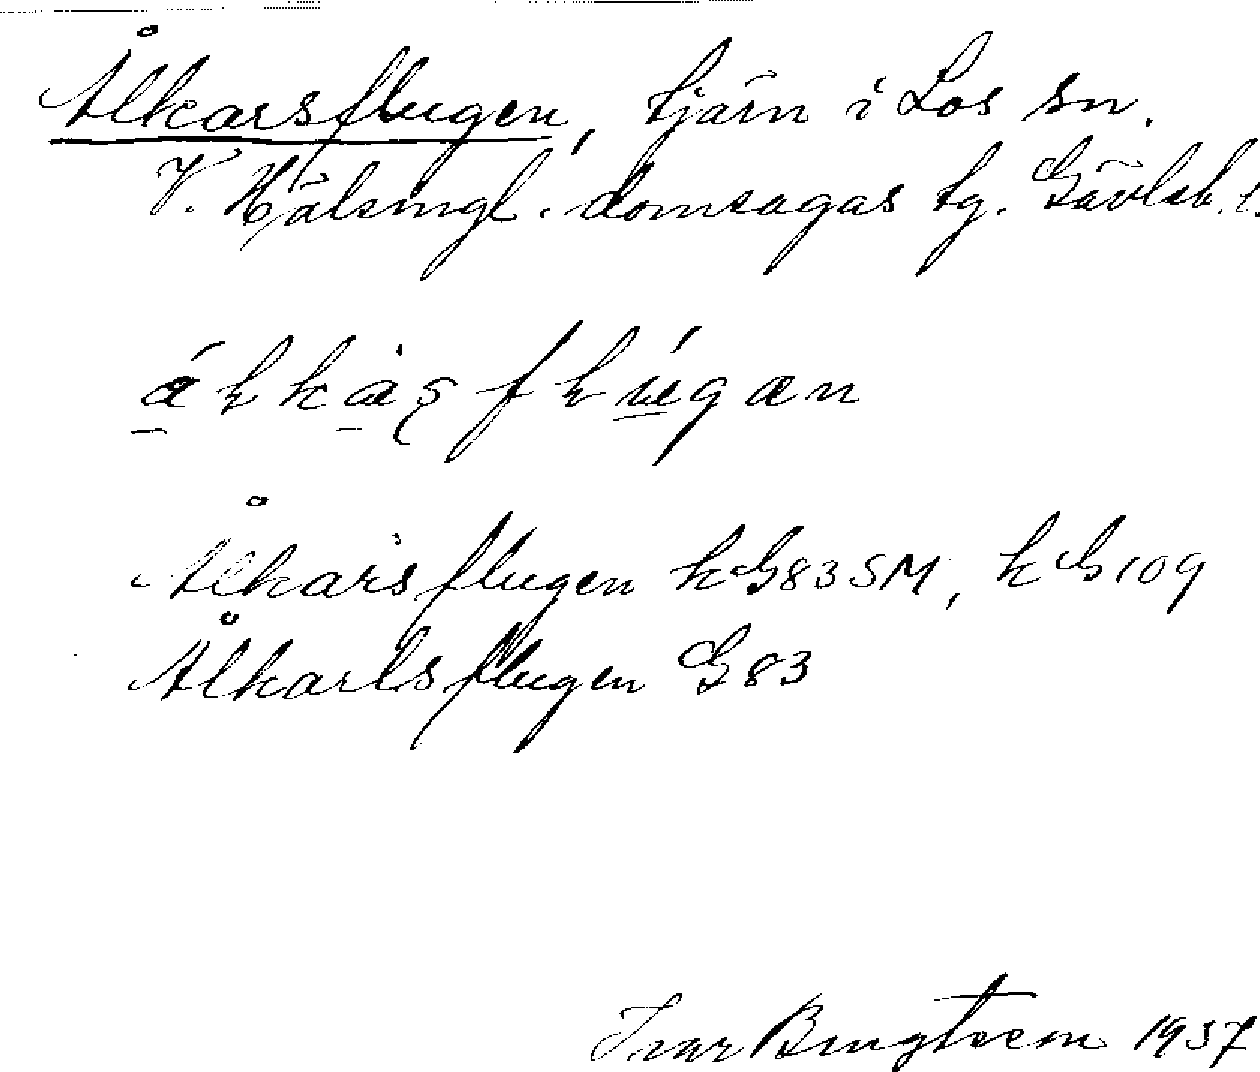 Ålkarsflugen, tjärn i Los sn.
V. Hälsingl. domsagas tg. Gävleb. l.
Ålkarsflugen kG83SM, kG109
Ålkarlsflugen G83
Ivar 1957